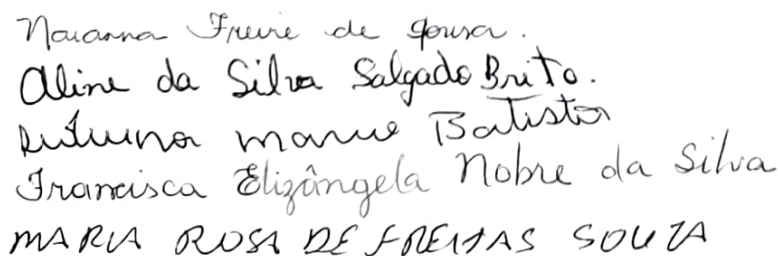 Naianna Freire de Sousa.
Aline da Silva Salgado Brito.
Batista
Francisca Elizângela Nobre da Silva
MARIA ROSA DE FREITAS SOUZA